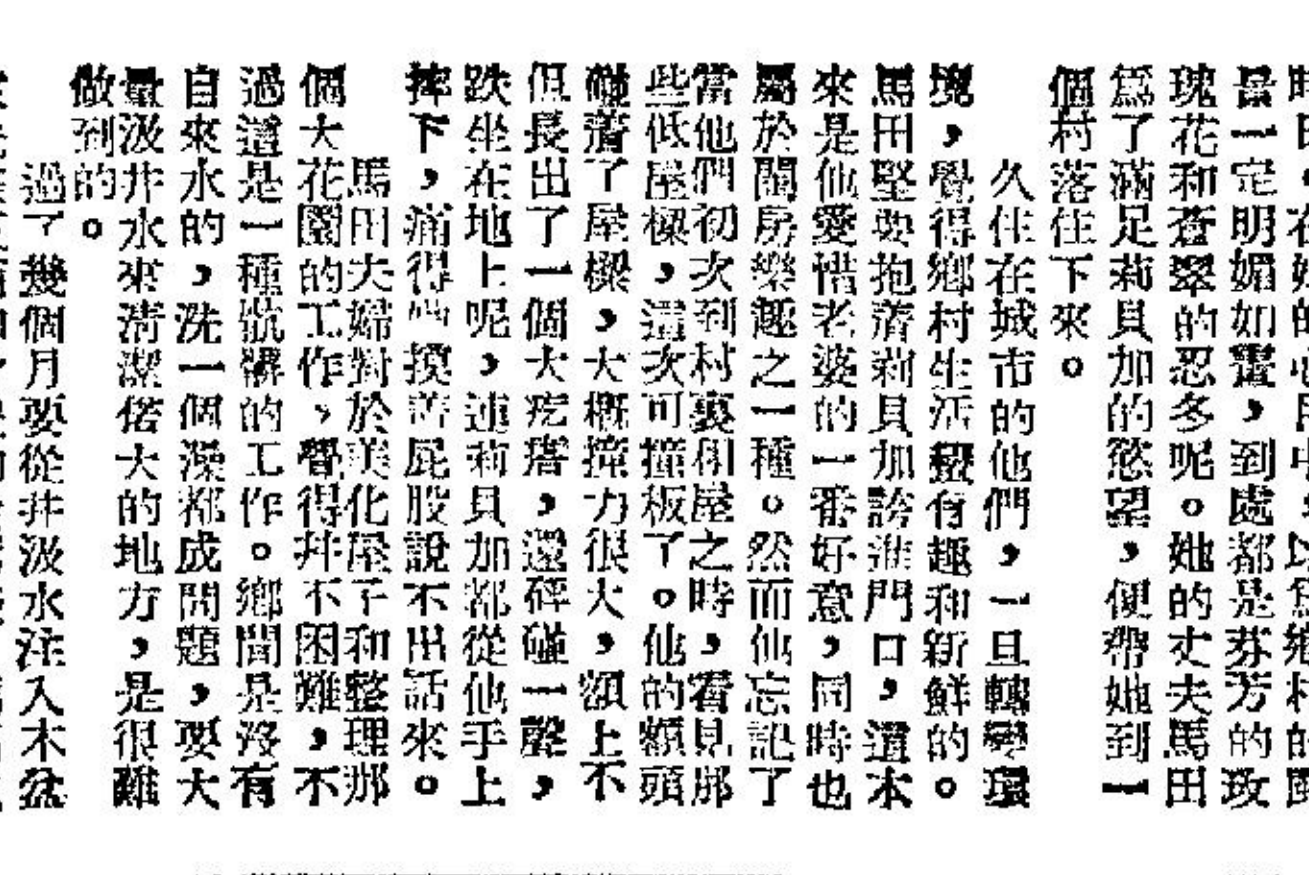 景一定明媚如畫，到處都是芬芳的玫
瑰花和蒼翠的忍冬呢。她的丈夫馬田
爲了滿足莉貝加的慾望，便帶她到一
個村落住下來。
久住在城市的他們，一旦轉變環
境，覺得鄉村生活蠻有趣和新鮮的。
馬田堅要抱着莉貝加誇進門口，這本
來是他愛惜老婆的一番好意，同時也
屬於閨房樂趣之一種。然而他忘記了
當他們初次到村裏相屋之時，看見那
些低屋樑，這次可撞板了。他的額頭
碰着了屋樑，大概撞力很大，額上不
但長出了一個大疙瘩，還砰碰一聲，
跌坐在地上呢，連莉貝加都從他手上
摔下，痛得 摸着屁股說不出話來。
馬田夫婦對於美化屋子和整理那
個大花園的工作，覺得幷不困難，不
過這是一種骯髒的工作。鄉間是沒有
自來水的，洗一個澡都成問題，要大
量汲井水來清潔偌大的地方，是很難
做到的。
過了幾個月要從井汲水注入木盆